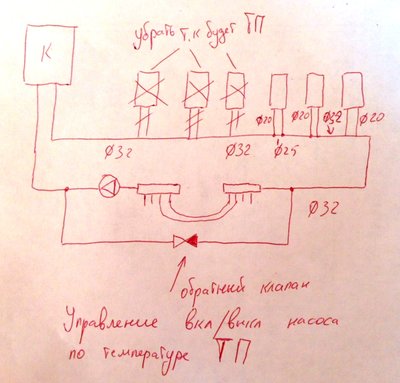 убрать т.к будет ТП
К
ø20 ø20 ø32 ø20
ø32 ø32 ø25
ø32
обратный клапан
Управление вкл/выкл насоса
по температуре ТП